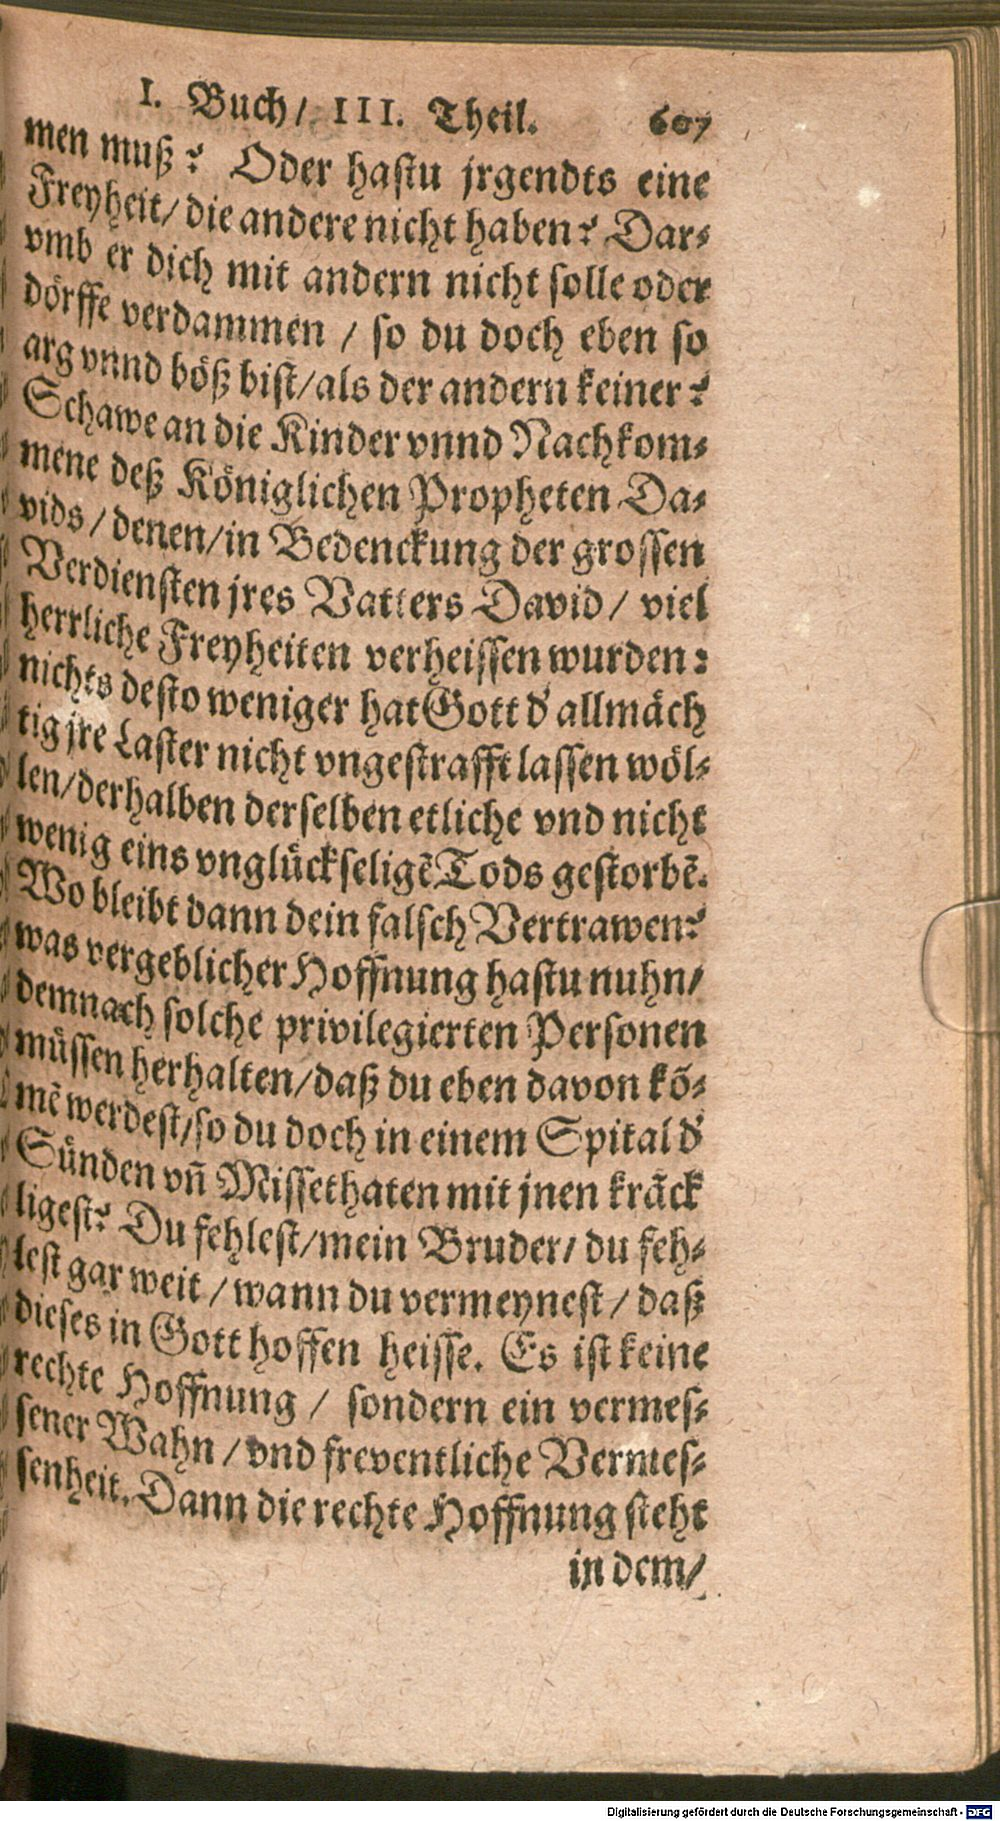 I. Buch/ III. Theil. 607
men muß? Oder hastu jrgendts eine
Freyheit/ die andere nicht haben? Dar-
vmb er dich mit andern nicht solle oder
dörffe verdammen / so du doch eben so
arg vnnd böß bist/als der andern keiner?
Schawe an die Kinder vnnd Nachkom-
mene deß Königlichen Propheten Da-
vids / denen/in Bedenckung der grossen
Verdiensten jres Vatters David/ viel
herrliche Freyheiten verheissen wurden:
nichts desto weniger hat Gott d' allmäch
tig jre Laster nicht vngestrafft lassen wöl-
len/derhalben derselben etliche vnd nicht
wenig eins vnglückseligẽ Tods gestorbẽ.
Wo bleibt dann dein falsch Vertrawen?
was vergeblicher Hoffnung hastu nuhn/
demnach solche privilegierten Personen
müssen herhalten/daß du eben davon kõ-
mẽ werdest/so du doch in einem Spital d'
Sünden vñ Missethaten mit jnen kräck
ligest? Du fehlest/mein Bruder/ du feh-
lest gar weit / wann du vermeynest / daß
dieses in Gott hoffen heisse. Es ist keine
rechte Hoffnung / sondern ein vermes-
sener Wahn / vnd freventliche Vermes-
senheit. Dann die rechte Hoffnung steht
in dem/
Digitalisierung gefördert durch die Deutsche Forschungsgemeinschaft - DFG